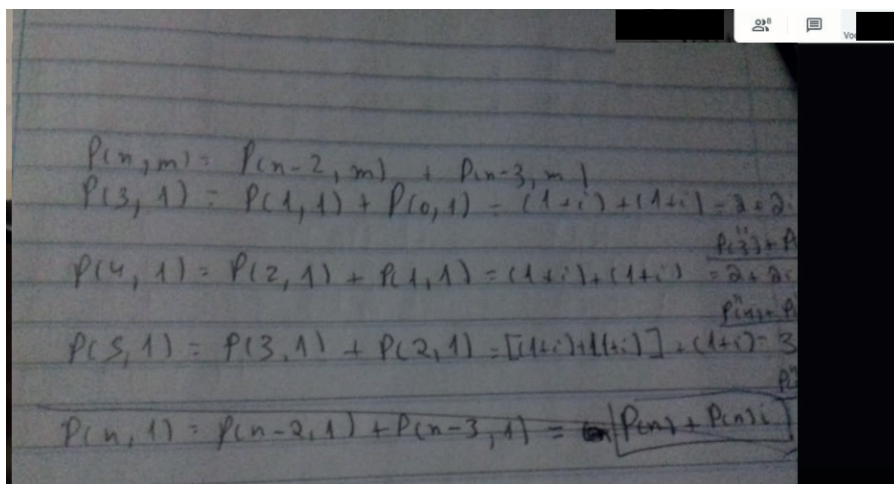 P(n,m) = P(n-2,m) + P(n-3,m)
P(3,1) = P(1,1) + P(0,1) = (1+i)+(1+i) = 2+2i
P(3)+P
P(4,1) = P(2,1) + P(1,1) = (1+i)+(1+i) = 2+2i
P(5,1) = P(3,1) + P(2,1) = [(1+i)+1(1+i)]+(1+i) = 3
P(n,1) = P(n-2,1) + P(n-3,1) = P(n) + P(n)i